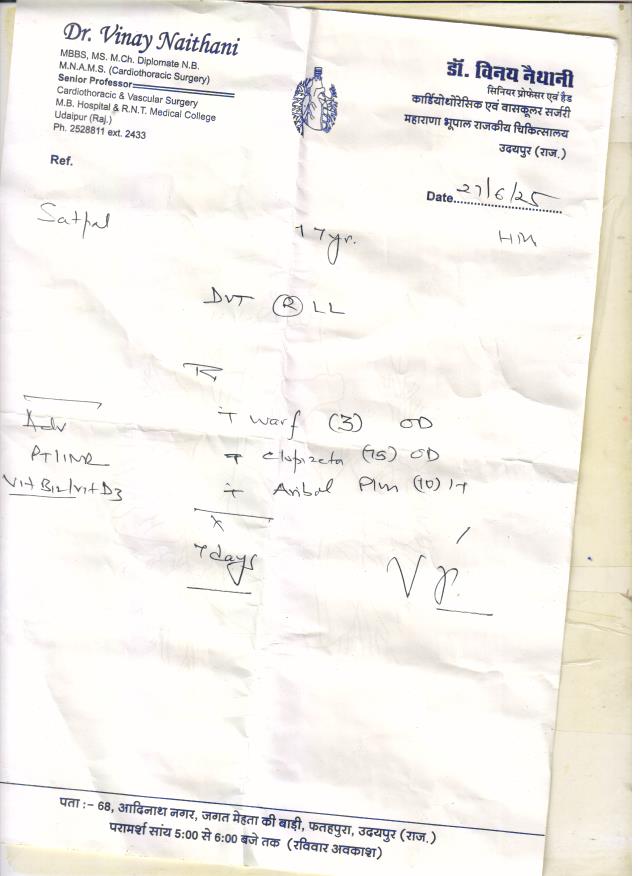 Dr. Vinay Naithani
MBBS, MS. M.Ch. Diplomate N.B.
M.N.A.M.S. (Cardiothoracic Surgery)
Senior Professor
Cardiothoracic & Vascular Surgery
M.B. Hospital & R.N.T. Medical College
Udaipur (Raj.)
Ph. 2528811 ext. 2433
डॉ. विनय नैथानी
सिनियर प्रोफेसर एवं हैड
कार्डियोथोरेसिक एवं वासकूलर सर्जरी
महाराणा भूपाल राजकीय चिकित्सालय
उदयपुर (राज.)
Ref.
Date 27/6/25
Satpal 17yr.
DVT R LL
Adv
PT/INR
Vit B12/Vit D3
T warf (3) OD
(75) OD
Plus (10)
x
7 days
पता :- 68, आदिनाथ नगर, जगत मेहता की बाड़ी, फतहपुरा, उदयपुर (राज.)
परामर्श सांय 5:00 से 6:00 बजे तक (रविवार अवकाश)